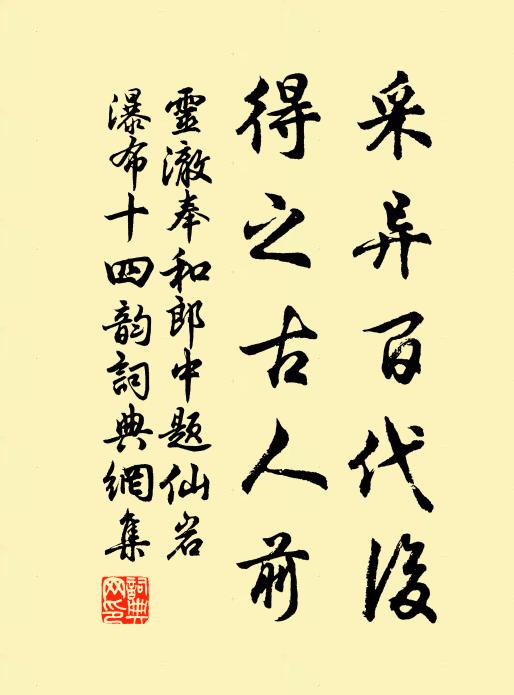 采异百代後
得之古人前
靈澈奉和郎中题仙岩
瀑布十四韵詞典網集
詞典
网印